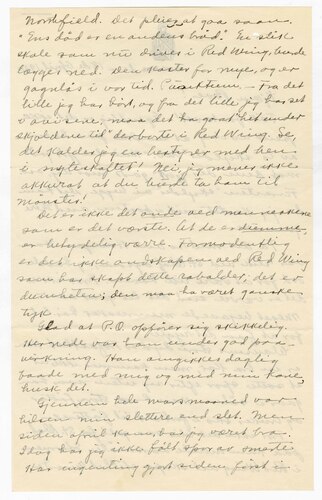 Northfield. Det pleier at gaa saan.
"Ens död er en andens bröd." En slik
skole som nu drives i Red Wing, burde
lægges ned. Den koster for mye, og er
gagnlös i vor tid. Parenthem - Fra det
lille jeg har hört, og fra det lille jeg har set
i avisene, maa det ha gaat het under
skjoldene til derborte i Red Wing. Se,
det kalder jeg en bestyrer med ben
i nyteskaftet! Nei, jeg mener ikke
akkurat at du burde ta ham til
mönster!
Det er ikke det onde ved menneskene
som er det værste. At de er dumme
er betydelig værre. Formodentlig
er det ikke ondskapen ved Red Wing
som har skapt dette rabalder, det er
dumheten; den maa ha været ganske
tyk.
Glad at P.O. opförer sig skikkelig.
Her nede var han under god paa-
virkning. Han omgikkes daglig
baade med mig og med min kone,
husk det.
Gjennem hele mars maaned var
helsen min slettere end slet. Men
siden april kom, har jeg været bra.
Idag har jeg ikke fölt spor av smerte
Har ingenting gjort siden först i